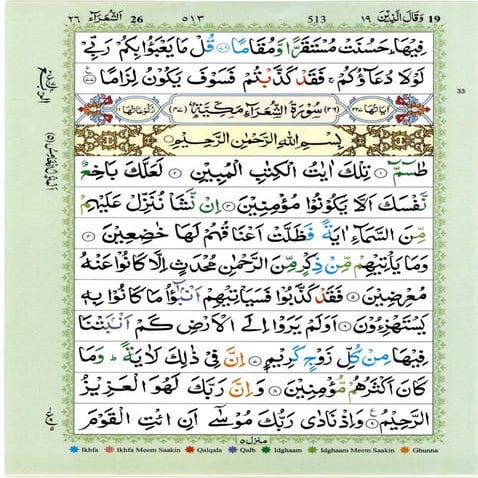 الشُّعَرَآء ٢٦ 26 ٥١٣ 513 وَقَالَ الَّذِيْنَ ١٩ 19
فِيْهَا ؕ حَسُنَتْ مُسْتَقَرًّا وَّمُقَامًا ﴿۷۶﴾ قُلْ مَا يَعْبَؤُا بِكُمْ رَبِّىْ
لَوْلَا دُعَآؤُكُمْ ۚ فَقَدْ كَذَّبْتُمْ فَسَوْفَ يَكُوْنُ لِزَامًا ﴿۷۷﴾
اٰيَاتُهَا ٢٢٧ (٢٦) سُوْرَةُ الشُّعَرَآءِ مَكِّيَّةٌ (٤٧) رُكُوْعَاتُهَا ١١
بِسْمِ اللّٰهِ الرَّحْمٰنِ الرَّحِيْمِ
طٰسٓمّٓ ﴿۱﴾ تِلْكَ اٰيٰتُ الْكِتٰبِ الْمُبِيْنِ ﴿۲﴾ لَعَلَّكَ بَاخِعٌ
نَّفْسَكَ اَلَّا يَكُوْنُوْا مُؤْمِنِيْنَ ﴿۳﴾ اِنْ نَّشَاْ نُنَزِّلْ عَلَيْهِمْ
مِّنَ السَّمَآءِ اٰيَةً فَظَلَّتْ اَعْنَاقُهُمْ لَهَا خٰضِعِيْنَ ﴿۴﴾
وَمَا يَاْتِيْهِمْ مِّنْ ذِكْرٍ مِّنَ الرَّحْمٰنِ مُحْدَثٍ اِلَّا كَانُوْا عَنْهُ
مُعْرِضِيْنَ ﴿۵﴾ فَقَدْ كَذَّبُوْا فَسَيَاْتِيْهِمْ اَنْۢبٰٓؤُا مَا كَانُوْا بِهٖ
يَسْتَهْزِءُوْنَ ﴿۶﴾ اَوَلَمْ يَرَوْا اِلَى الْاَرْضِ كَمْ اَنْۢبَتْنَا
فِيْهَا مِنْ كُلِّ زَوْجٍ كَرِيْمٍ ﴿۷﴾ اِنَّ فِىْ ذٰلِكَ لَاٰيَةً ؕ وَمَا
كَانَ اَكْثَرُهُمْ مُّؤْمِنِيْنَ ﴿۸﴾ وَاِنَّ رَبَّكَ لَهُوَ الْعَزِيْزُ
الرَّحِيْمُ ﴿۹﴾ وَاِذْ نَادٰى رَبُّكَ مُوْسٰٓى اَنِ ائْتِ الْقَوْمَ
منزل ٥
33
Ikhfa Ikhfa Meem Saakin Qalqala Qalb Idghaam Idghaam Meem Saakin Ghunna